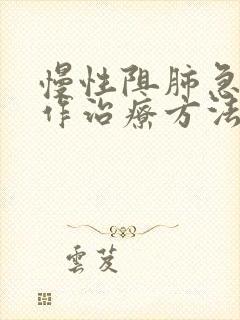 慢性阻肺急
作治疗方法
雲芨